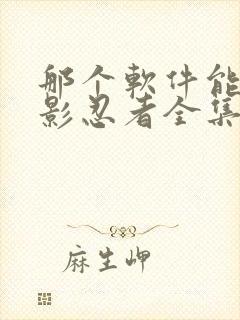 那个软件能
影忍者全集
麻生岬